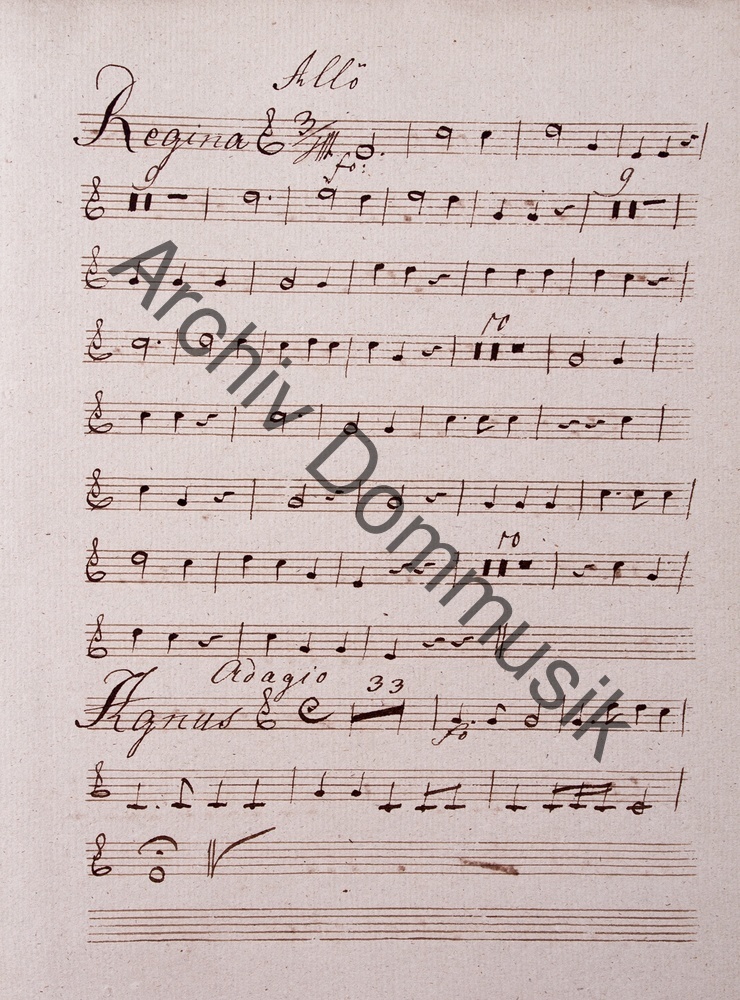 Allō
Regina 3/4
fo:
9 9
10
10
Adagio
Agnus C 33
fo
Archiv Dommusik